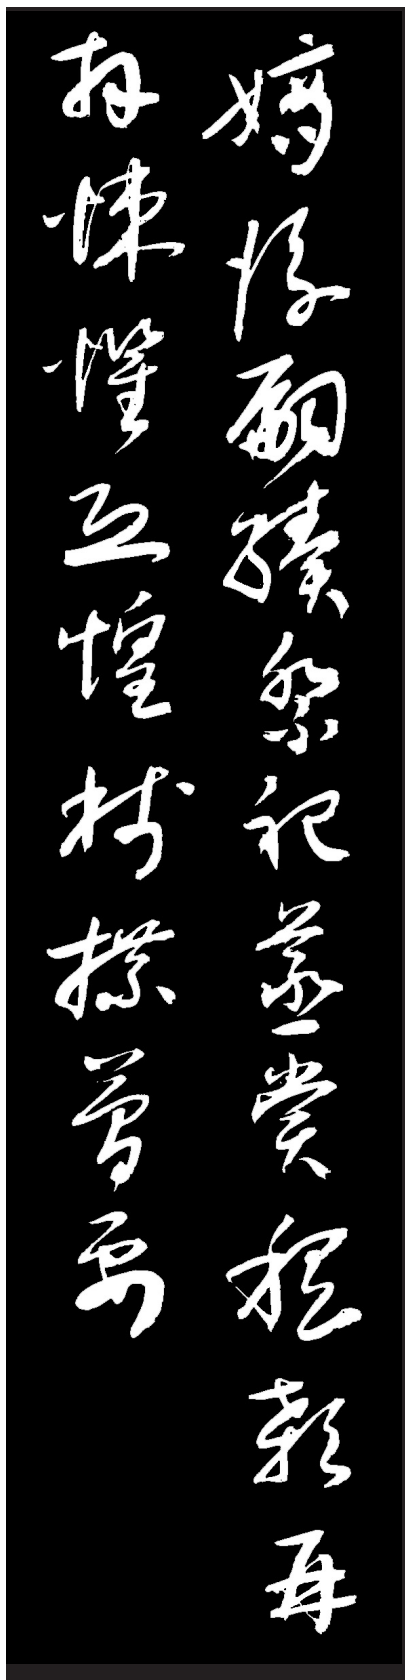 嫡後嗣續祭祀蒸嘗稽顙再
拜悚懼恐惶牋牒簡要